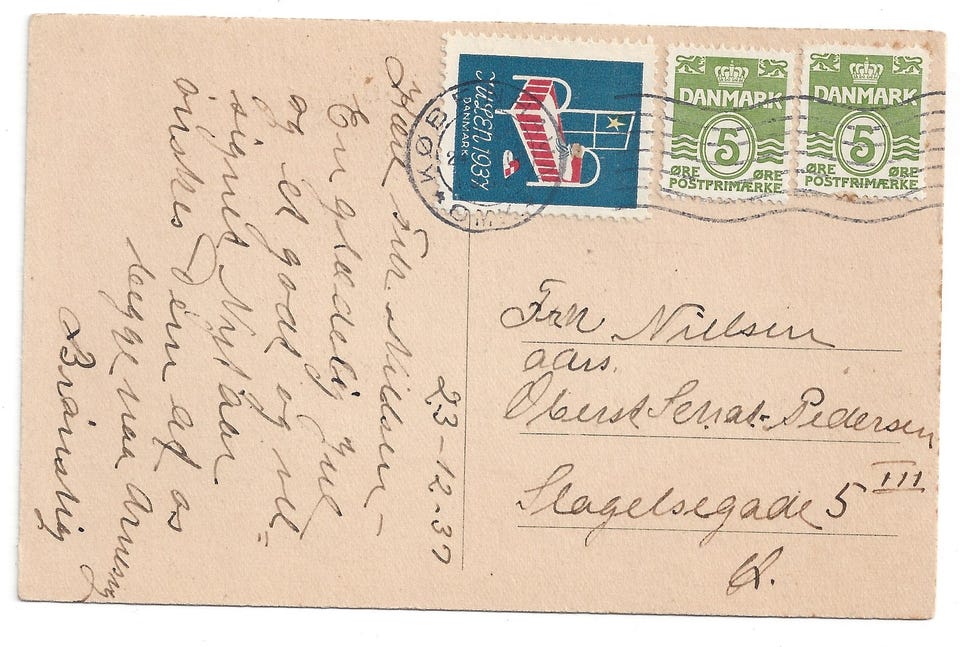 23-12-37
Kære Frk. Nielsen -
En glædelig Jul
og et godt og vel-
signet Nytaar
ønskes Dem af os
begge
JULEN 1937
DANMARK
KØB
DANMARK
5
ØRE ØRE
POSTFRIMÆRKE
DANMARK
5
ØRE ØRE
POSTFRIMÆRKE
Frk Nielsen
adrs.
Oberst Pedersen
Slagelsegade 5 III
K.